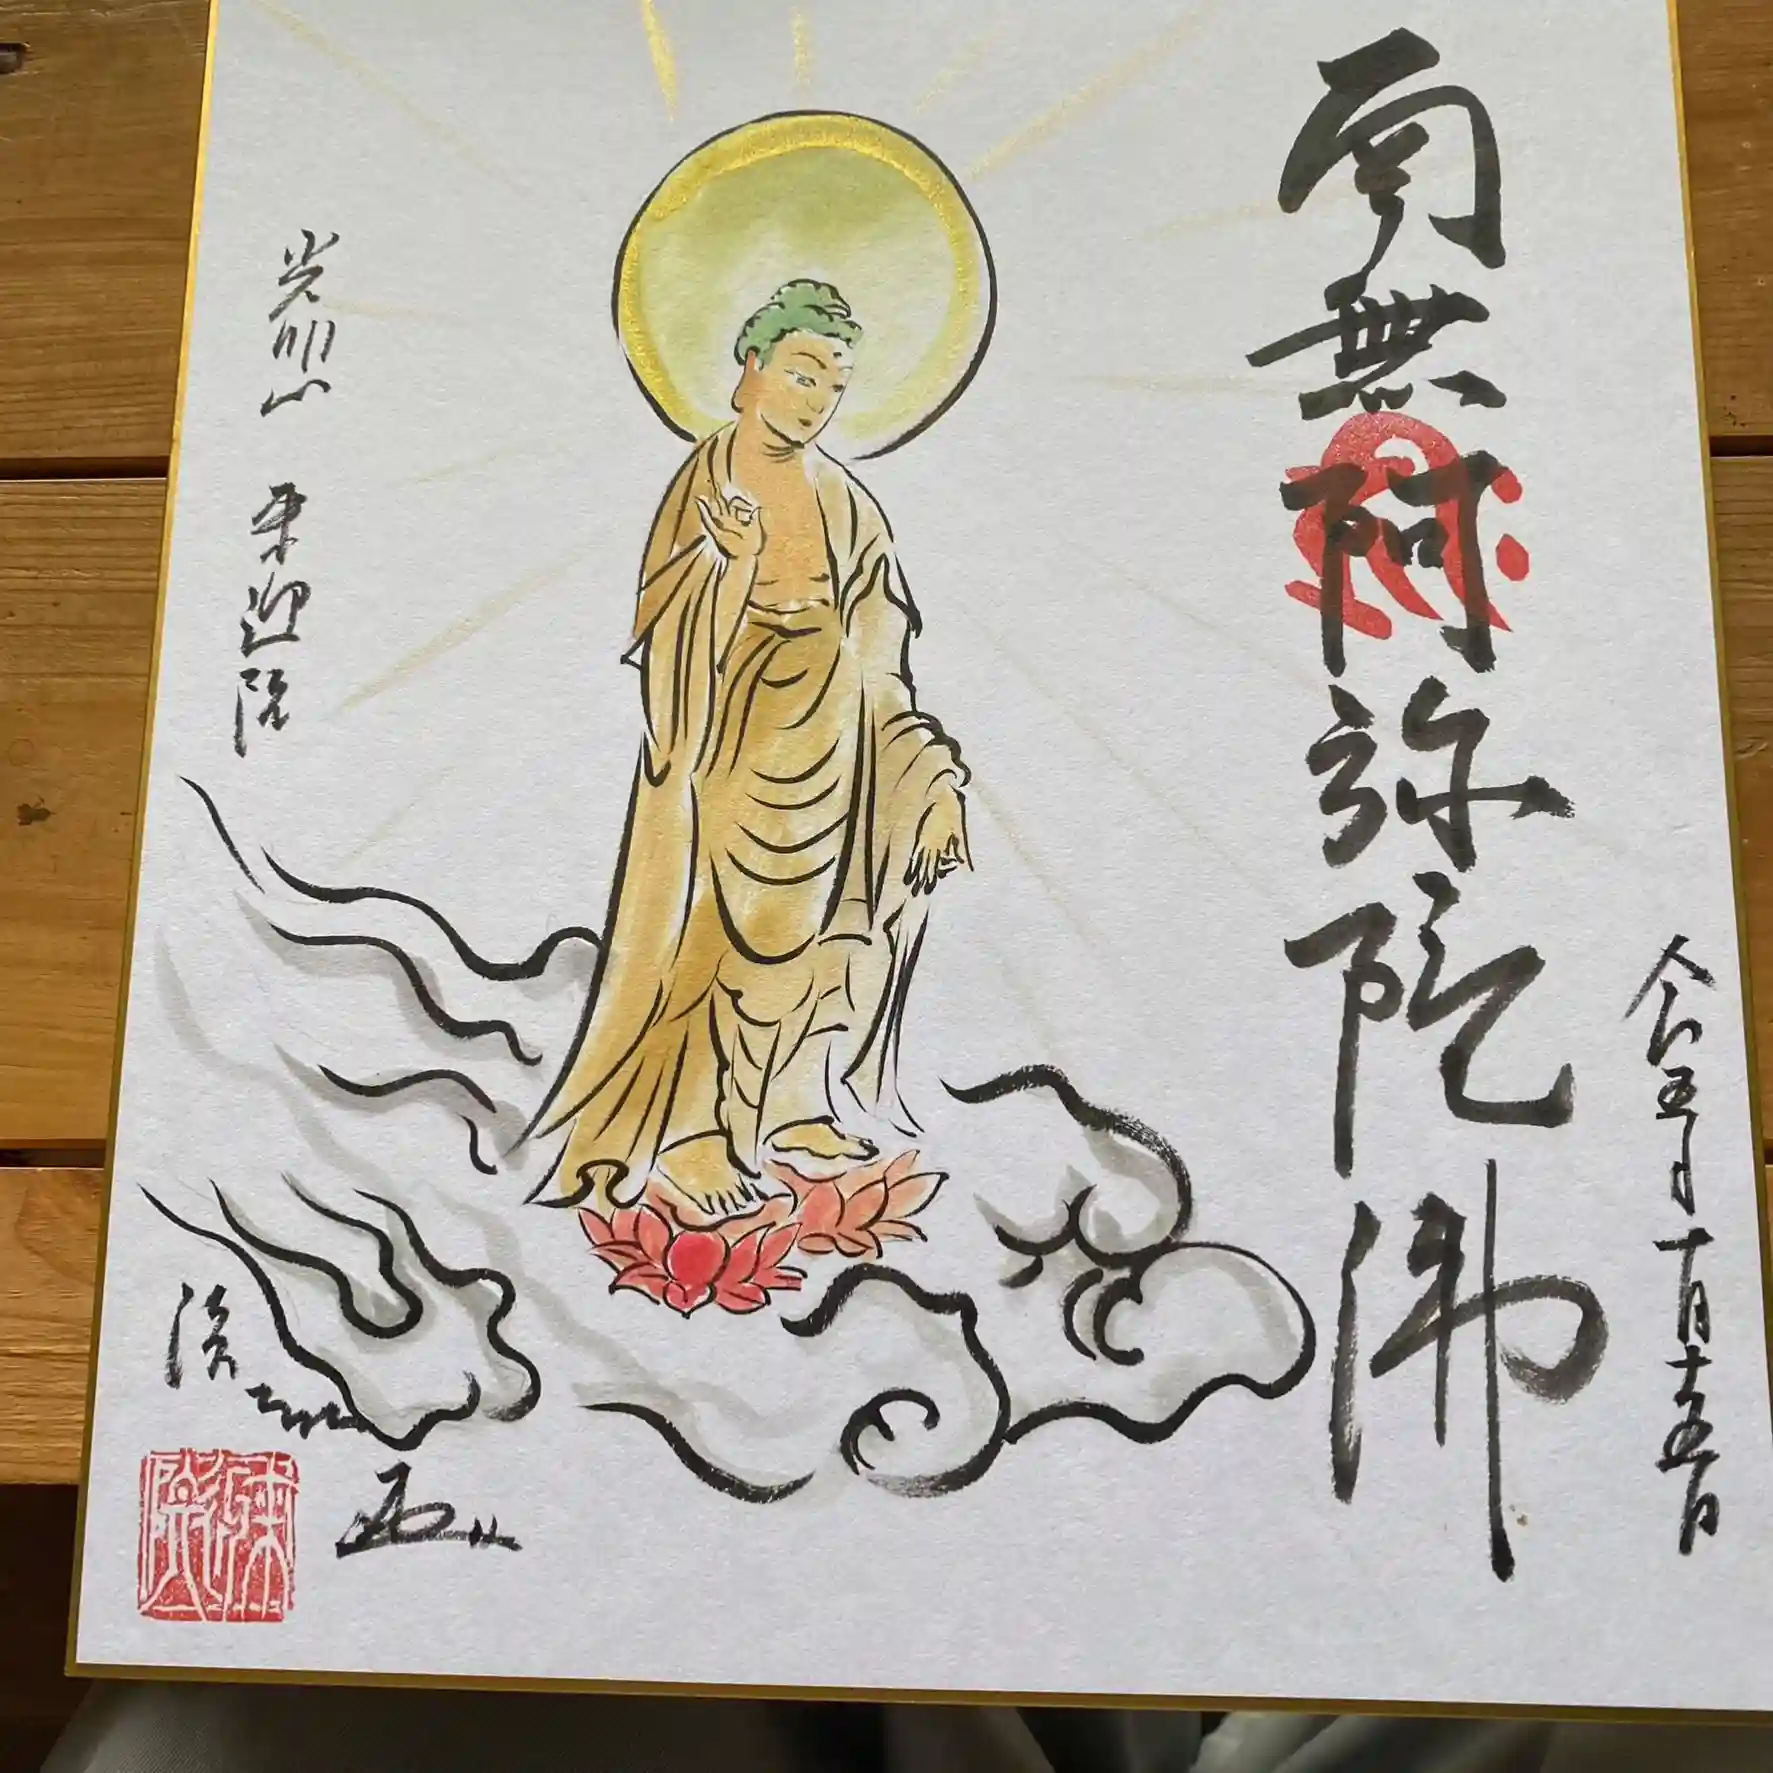 南無阿弥陀佛
令和五年十月十五日
光明山
来迎院
来迎院